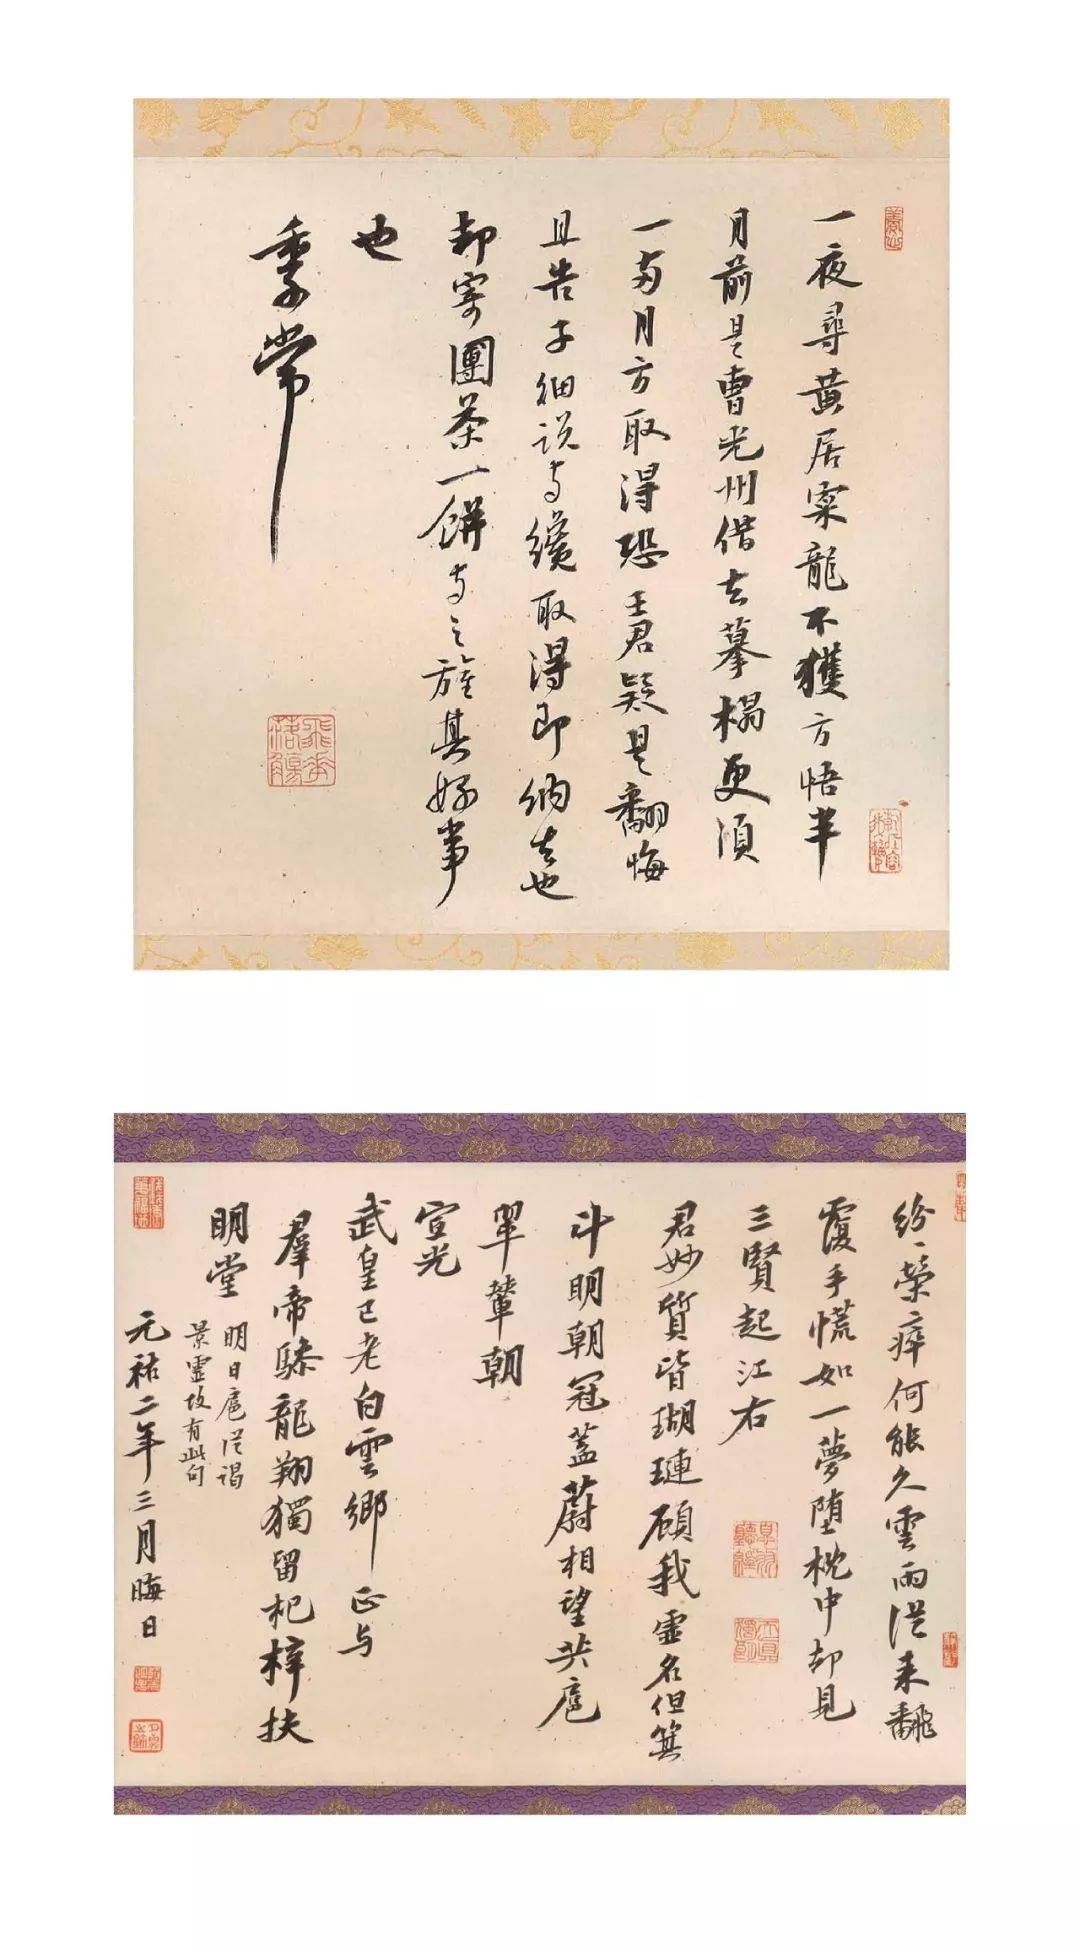 一夜尋黃居寀龍不獲方悟半
月前是曹光州借去摹榻更須
一兩月方取得恐王君疑是翻悔
且告子細說與纔取得即納去也
却寄團茶一餅與之旌其好事
也
季常
紛紛榮瘁何能久雲雨從來翻
覆手怳如一夢墮枕中却見
三賢起江右
君妙質皆瑚璉顧我虛名但箕
斗明朝冠蓋蔚相望共扈
翠輦朝
宣光
武皇已老白雲鄉正与
羣帝驂龍翔獨留杞梓扶
明堂
明日扈從謁
景靈故有此句
元祐二年三月晦日